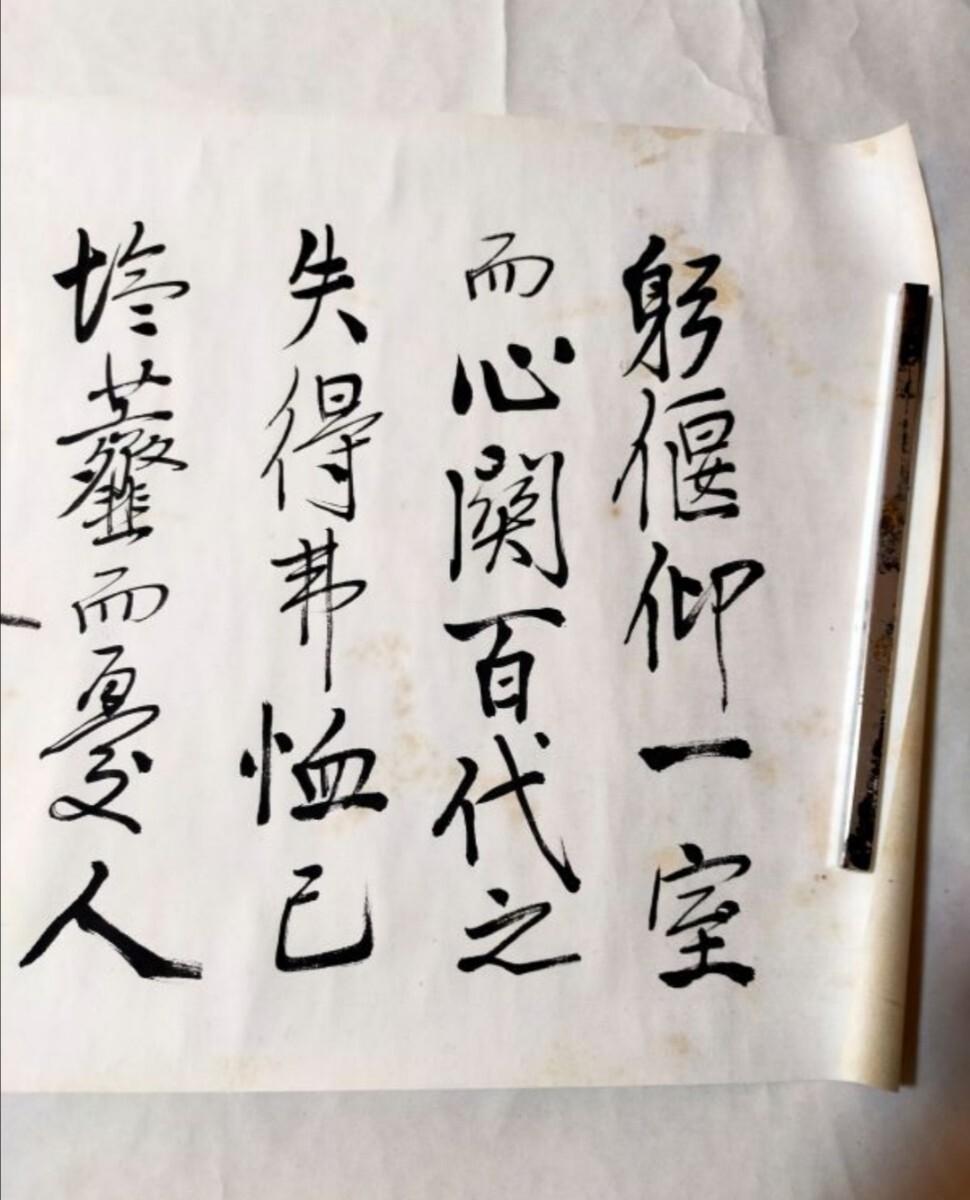 躬偃仰一室
而心關百代之
失得弗恤己
塩虀而憂人